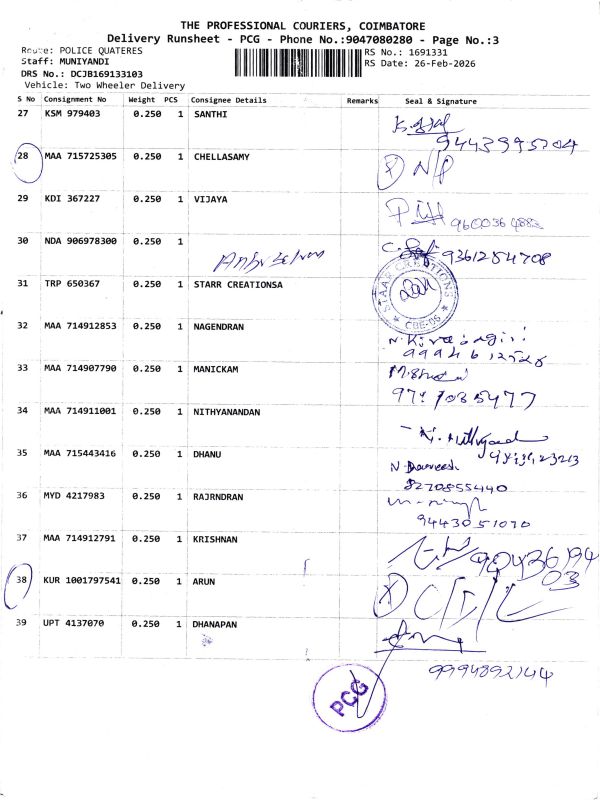 THE PROFESSIONAL COURIERS, COIMBATORE
Delivery Runsheet - PCG - Phone No.:9047080280 - Page No.:3
Route: POLICE QUATERES
RS No.: 1691331
Staff: MUNIYANDI
RS Date: 26-Feb-2026
DRS No.: DCJB169133103
Vehicle: Two Wheeler Delivery
S No Consignment No Weight PCS Consignee Details Remarks Seal & Signature
27 KSM 979403 0.250 1 SANTHI
9443995704
28 MAA 715725305 0.250 1 CHELLASAMY
29 KDI 367227 0.250 1 VIJAYA
30 NDA 906978300 0.250 1
9361284708
31 TRP 650367 0.250 1 STARR CREATIONSA
STAAR CREATIONS
CBE-05
32 MAA 714912853 0.250 1 NAGENDRAN
33 MAA 714907790 0.250 1 MANICKAM
34 MAA 714911001 0.250 1 NITHYANANDAN
35 MAA 715443416 0.250 1 DHANU
8270855440
36 MYD 4217983 0.250 1 RAJRNDRAN
9443051070
37 MAA 714912791 0.250 1 KRISHNAN
9043619403
38 KUR 1001797541 0.250 1 ARUN
39 UPT 4137070 0.250 1 DHANAPAN
9994892144
PCG